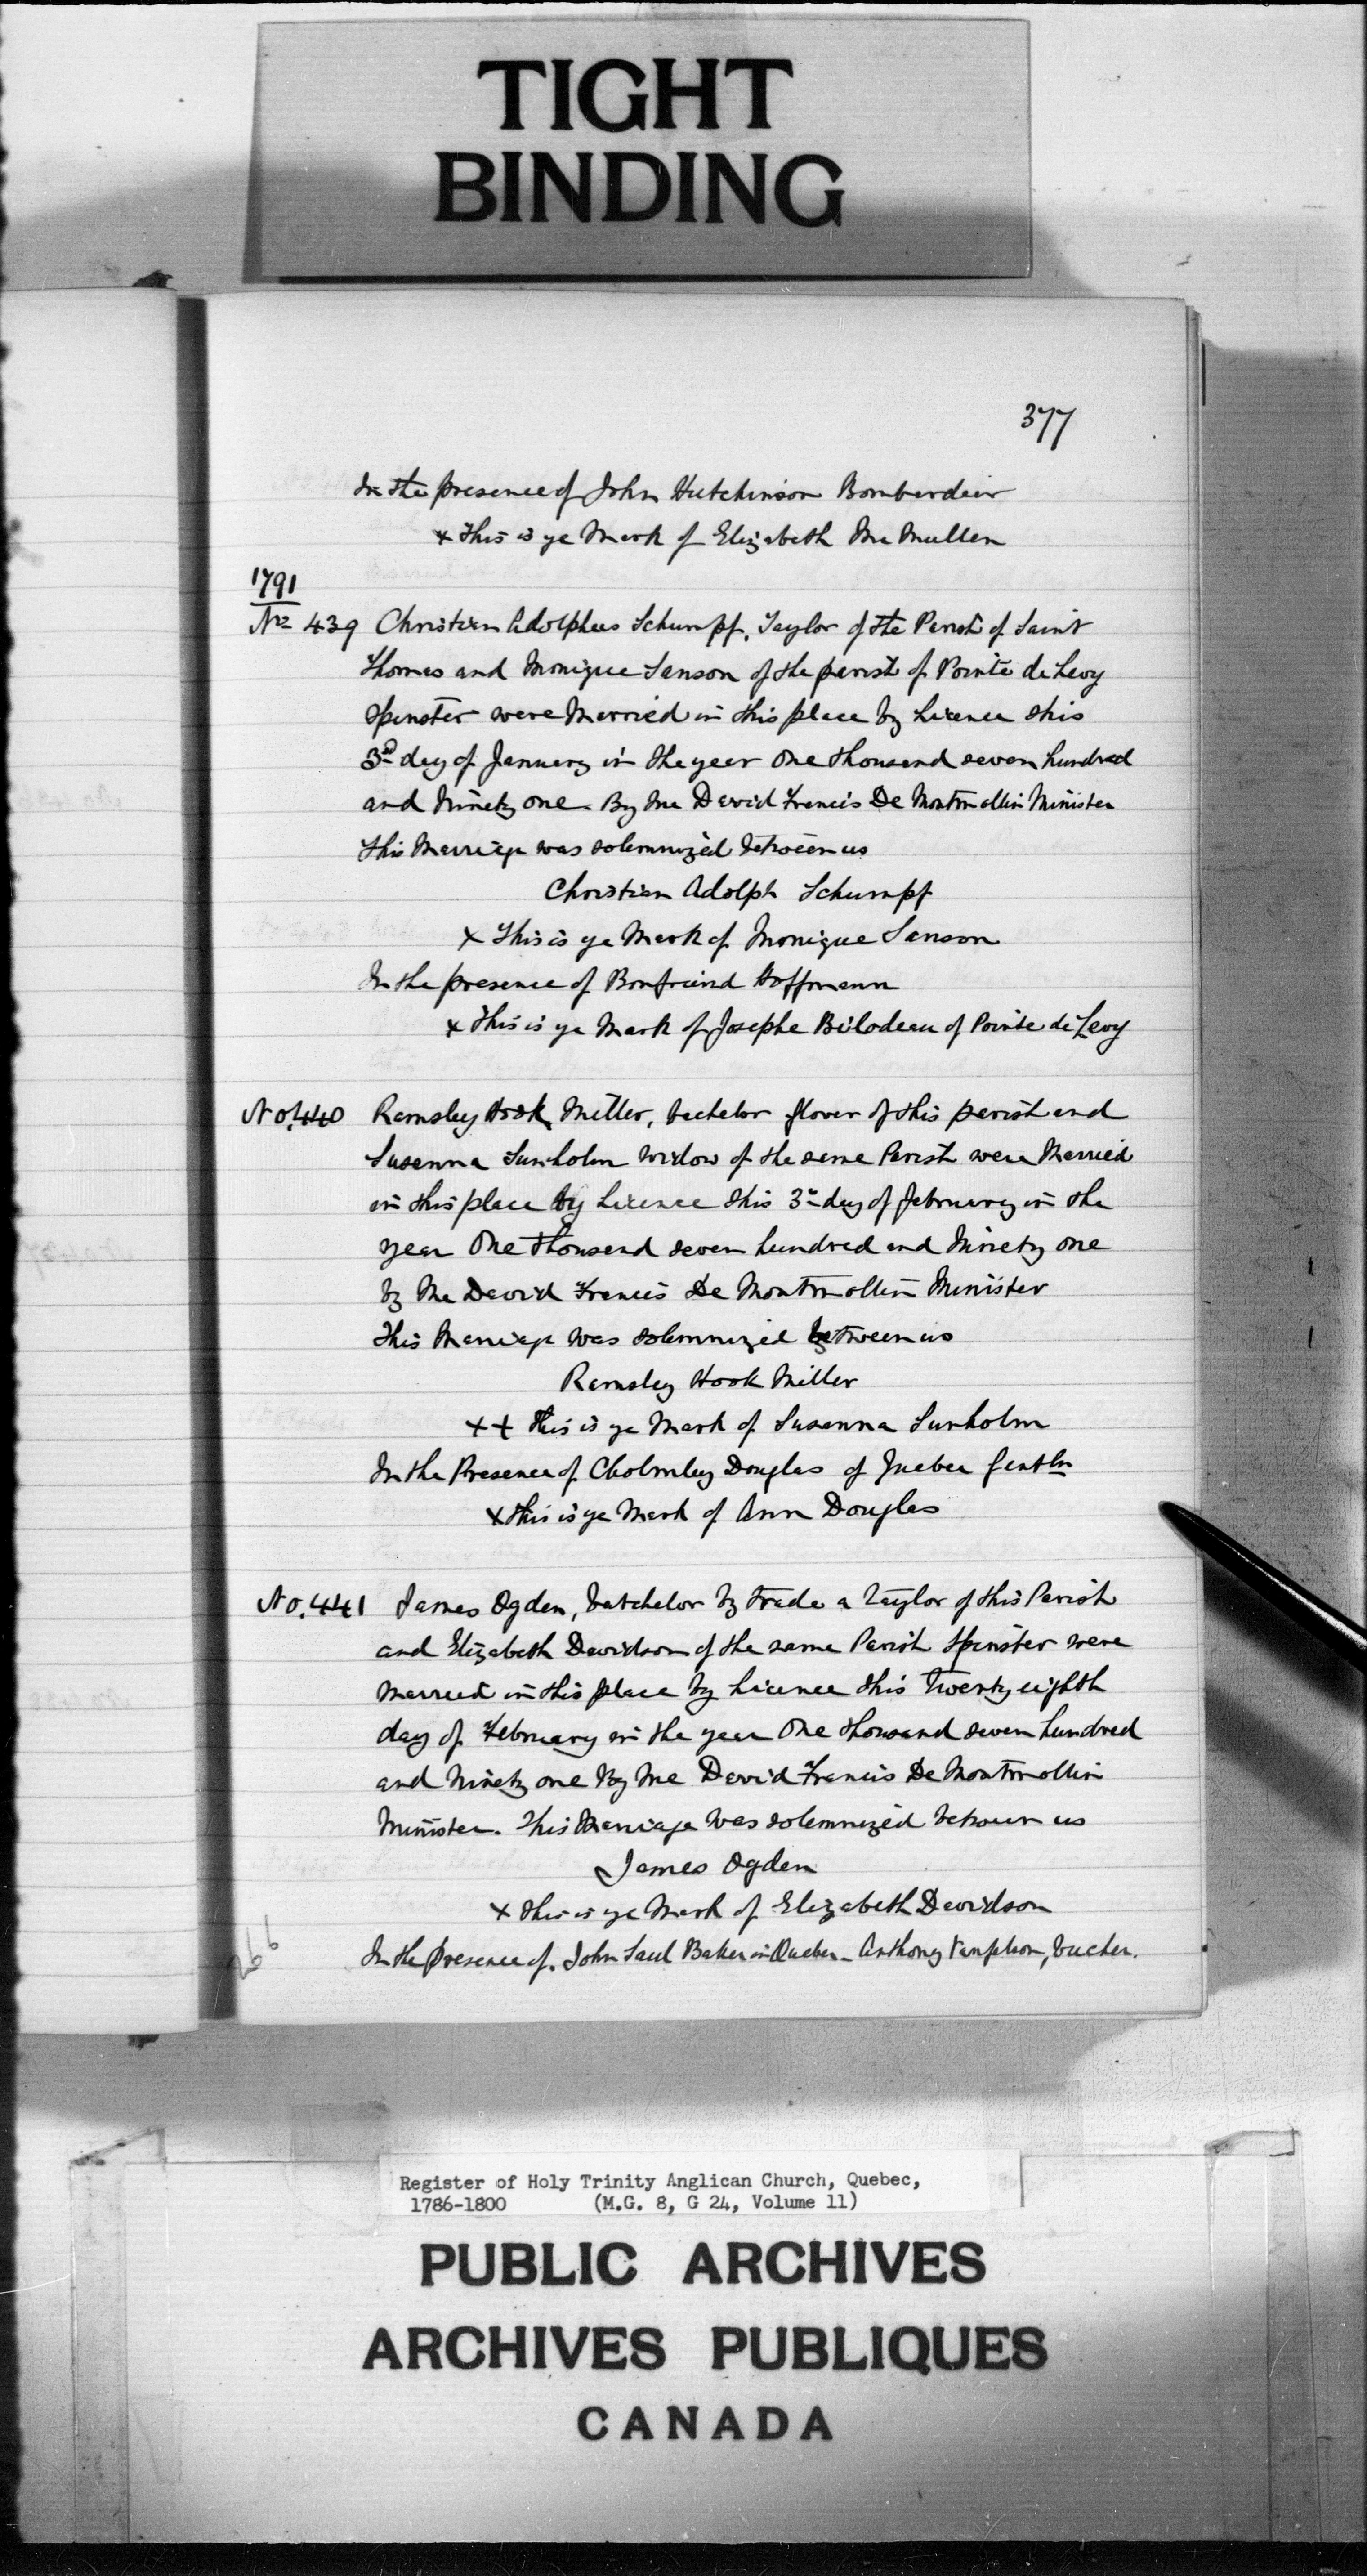 TIGHT
BINDING
377
In the presence of John Hutchinson Bomberdeir
x This is ye Mark of Elizabeth Mc Mullen
1791
No 439 Christian Adolphus Schumpf, Taylor of the Parish of Saint
Thomas and Monique Sanson of the parish of Pointe de Levy
Spinster were Married in this place by Licence this
3rd day of January in the year one thousand seven hundred
and Ninety one. By me David Francis De Montmollin Minister
This Marriage was solemnized between us
Christian Adolph Schumpf
x This is ye Mark of Monique Sanson
In the presence of Bonfriend Hoffmann
x This is ye Mark of Josephe Bilodeau of Pointe de Levy
No. 440 Ramsley Hook Miller, bachelor glover of this parish and
Susanna Sunholm widow of the same Parish were Married
in this place by Licence this 3rd day of February in the
year One thousand seven hundred and Ninety one
by Me David Francis De Montmollin Minister
This Marriage was solemnized between us
Ramsley Hook Miller
++ This is ye Mark of Susanna Sunholm
In the Presence of Cholmley Douglas of Quebec Gentln
x This is ye Mark of Ann Douglas
No. 441 James Ogden, batchelor by trade a Taylor of this Parish
and Elizabeth Davidson of the same Parish Spinster were
married in this place by Licence this twenty eighth
day of February in the year One thousand seven hundred
and Ninety one By me David Francis De Montmollin
Minister. This Marriage was solemnized between us
James Ogden
x this is ye Mark of Elizabeth Davidson
In the presence of. John Saul Baker in Quebec - Anthony
266
Register of Holy Trinity Anglican Church, Quebec,
1786-1800 (M.G. 8, G 24, Volume 11)
PUBLIC ARCHIVES
ARCHIVES PUBLIQUES
CANADA